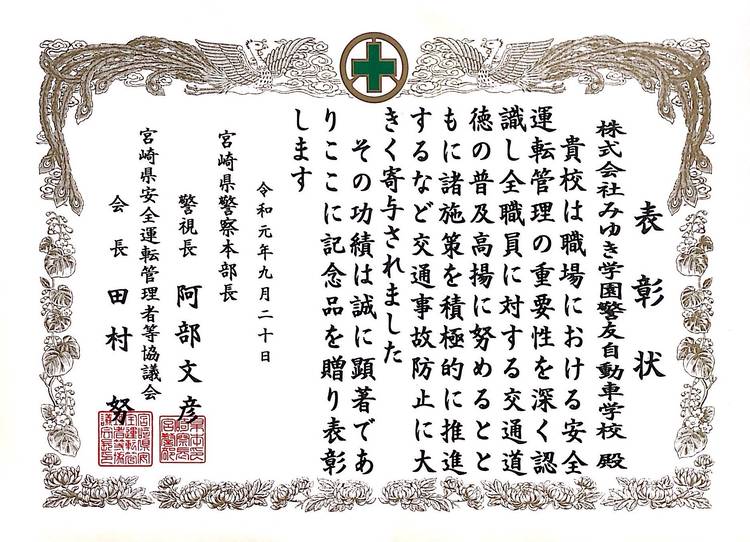 表彰状
株式会社みゆき学園警友自動車学校 殿
貴校は職場における安全
運転管理の重要性を深く認
識し全職員に対する交通道
徳の普及高揚に努めるとと
もに諸施策を積極的に推進
するなど交通事故防止に大
きく寄与されました
その功績は誠に顕著であ
りここに記念品を贈り表彰
します
令和元年九月二十日
宮崎県警察本部長
警視長 阿部文彦
宮崎県安全運転管理者等協議会
会長 田村 努